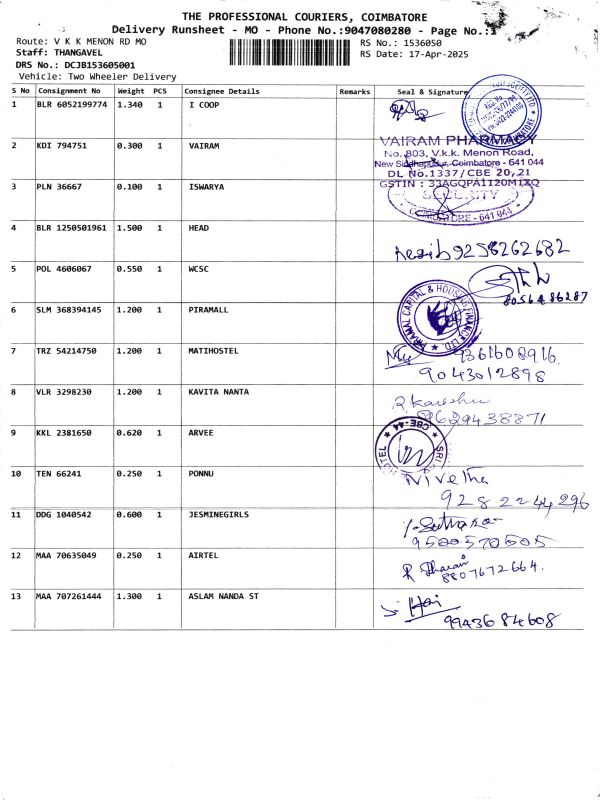 THE PROFESSIONAL COURIERS, COIMBATORE
Delivery Runsheet - MO - Phone No.:9047080280 - Page No.:1
Route: V K K MENON RD MO
RS No.: 1536050
Staff: THANGAVEL
RS Date: 17-Apr-2025
DRS No.: DCJB153605001
Vehicle: Two Wheeler Delivery
S No Consignment No Weight PCS Consignee Details Remarks Seal & Signature
1 BLR 6052199774 1.340 1 I COOP
2 KDI 794751 0.300 1 VAIRAM
VAIRAM PHARMACY
No. 803, V.k.k. Menon Road,
New Siddhapudur, Coimbatore - 641 044
DL No.1337/CBE 20, 21
GSTIN : 33AGQPA1120M1ZQ
3 PLN 36667 0.100 1 ISWARYA
SECURITY
COIMBATORE - 641 044
4 BLR 1250501961 1.500 1 HEAD
9258262682
5 POL 4606067 0.550 1 WCSC
8056486287
6 SLM 368394145 1.200 1 PIRAMALL
PIRAMAL CAPITAL & HOUSING FINANCE LTD
7 TRZ 54214750 1.200 1 MATIHOSTEL
9361608916.
9043012898
8 VLR 3298230 1.200 1 KAVITA NANTA
8629438871
9 KKL 2381650 0.620 1 ARVEE
CBE-44
SRI
HOTEL
10 TEN 66241 0.250 1 PONNU
Nivetha
9282244296
11 DDG 1040542 0.600 1 JESMINEGIRLS
9500570505
12 MAA 70635049 0.250 1 AIRTEL
R Dharani
8807672664.
13 MAA 707261444 1.300 1 ASLAM NANDA ST
9943684608